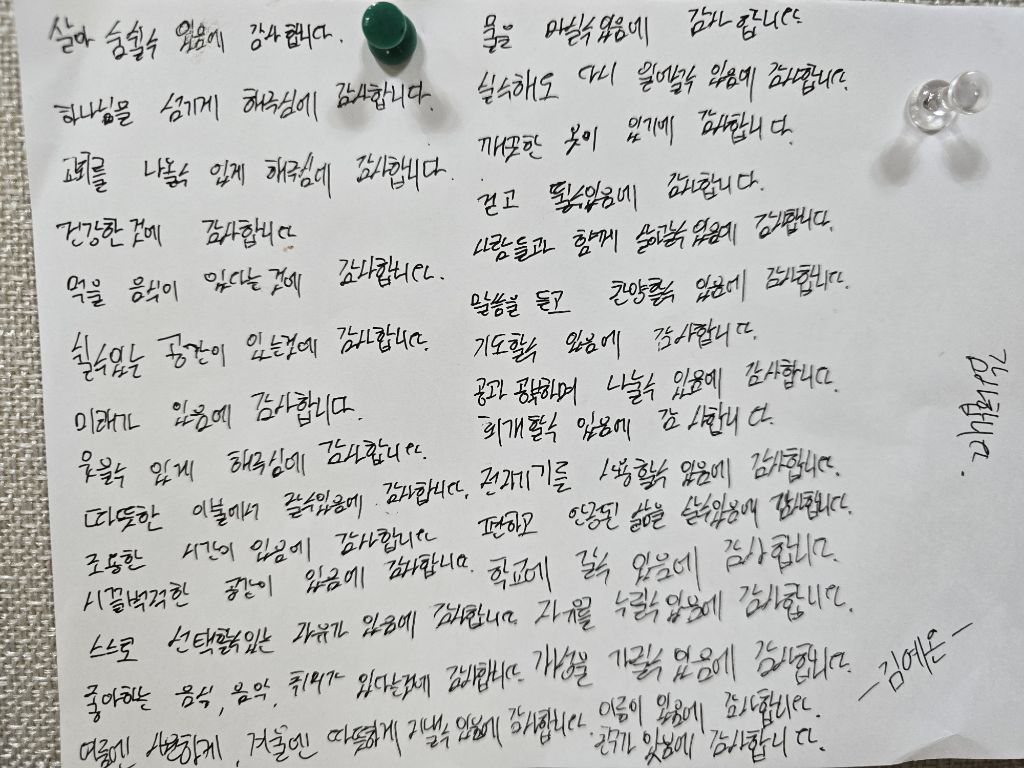 살아 숨쉴수 있음에 감사합니다.
하나님을 섬기게 해주심에 감사합니다.
교회를 나올수 있게 해주심에 감사합니다.
건강한 것에 감사합니다
먹을 음식이 있다는 것에 감사합니다.
쉴수있는 공간이 있는것에 감사합니다.
미래가 있음에 감사합니다.
웃을수 있게 해주심에 감사합니다.
따뜻한 이불에서 잘수있음에 감사합니다.
조용한 시간이 있음에 감사합니다
시끌벅적한 공간이 있음에 감사합니다.
스스로 선택할수있는 자유가 있음에 감사합니다
좋아하는 음식, 음악, 취미가 있다는것에 감사합니다.
여름엔 시원하게, 겨울엔 따뜻하게 지낼수 있음에 감사합니다.
물을 마실수있음에 감사합니다
실수해도 다시 일어날수 있음에 감사합니다.
깨끗한 옷이 있기에 감사합니다.
걷고 뛸수있음에 감사합니다.
사람들과 함께 살아갈수 있음에 감사합니다.
말씀을 듣고 찬양할수 있음에 감사합니다.
기도할수 있음에 감사합니다.
공과 공부하며 나눌수 있음에 감사합니다.
회개할수 있음에 감사합니다.
전자기기를 사용할수 있음에 감사합니다.
편하고 안정된 삶을 살수있음에 감사합니다.
학교에 갈수 있음에 감사합니다.
자유를 누릴수 있음에 감사합니다.
개성을 가질수 있음에 감사합니다.
이름이 있음에 감사합니다.
가 있음에 감사합니다.
감사합니다.
-김예은-